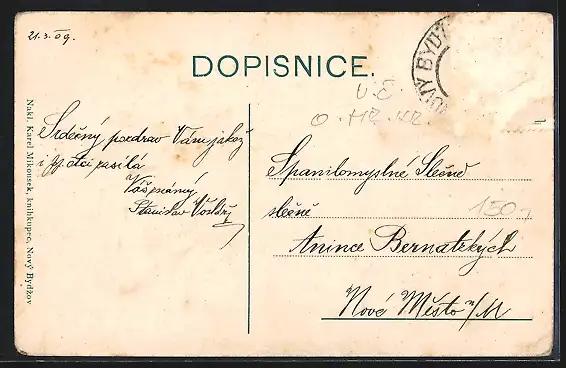 21.3.09.
DOPISNICE.
NOVÝ BYDŽ
Srdečný pozdrav Vám jakož
i p. otci zasílá
Váš známý
Stanislav
Spanilomyslné Slečně
slečně
Anince Bernatských
Nové Město n/M
150,-
Nakl. Karel Mikousek, knihkupec, Nový Bydžov